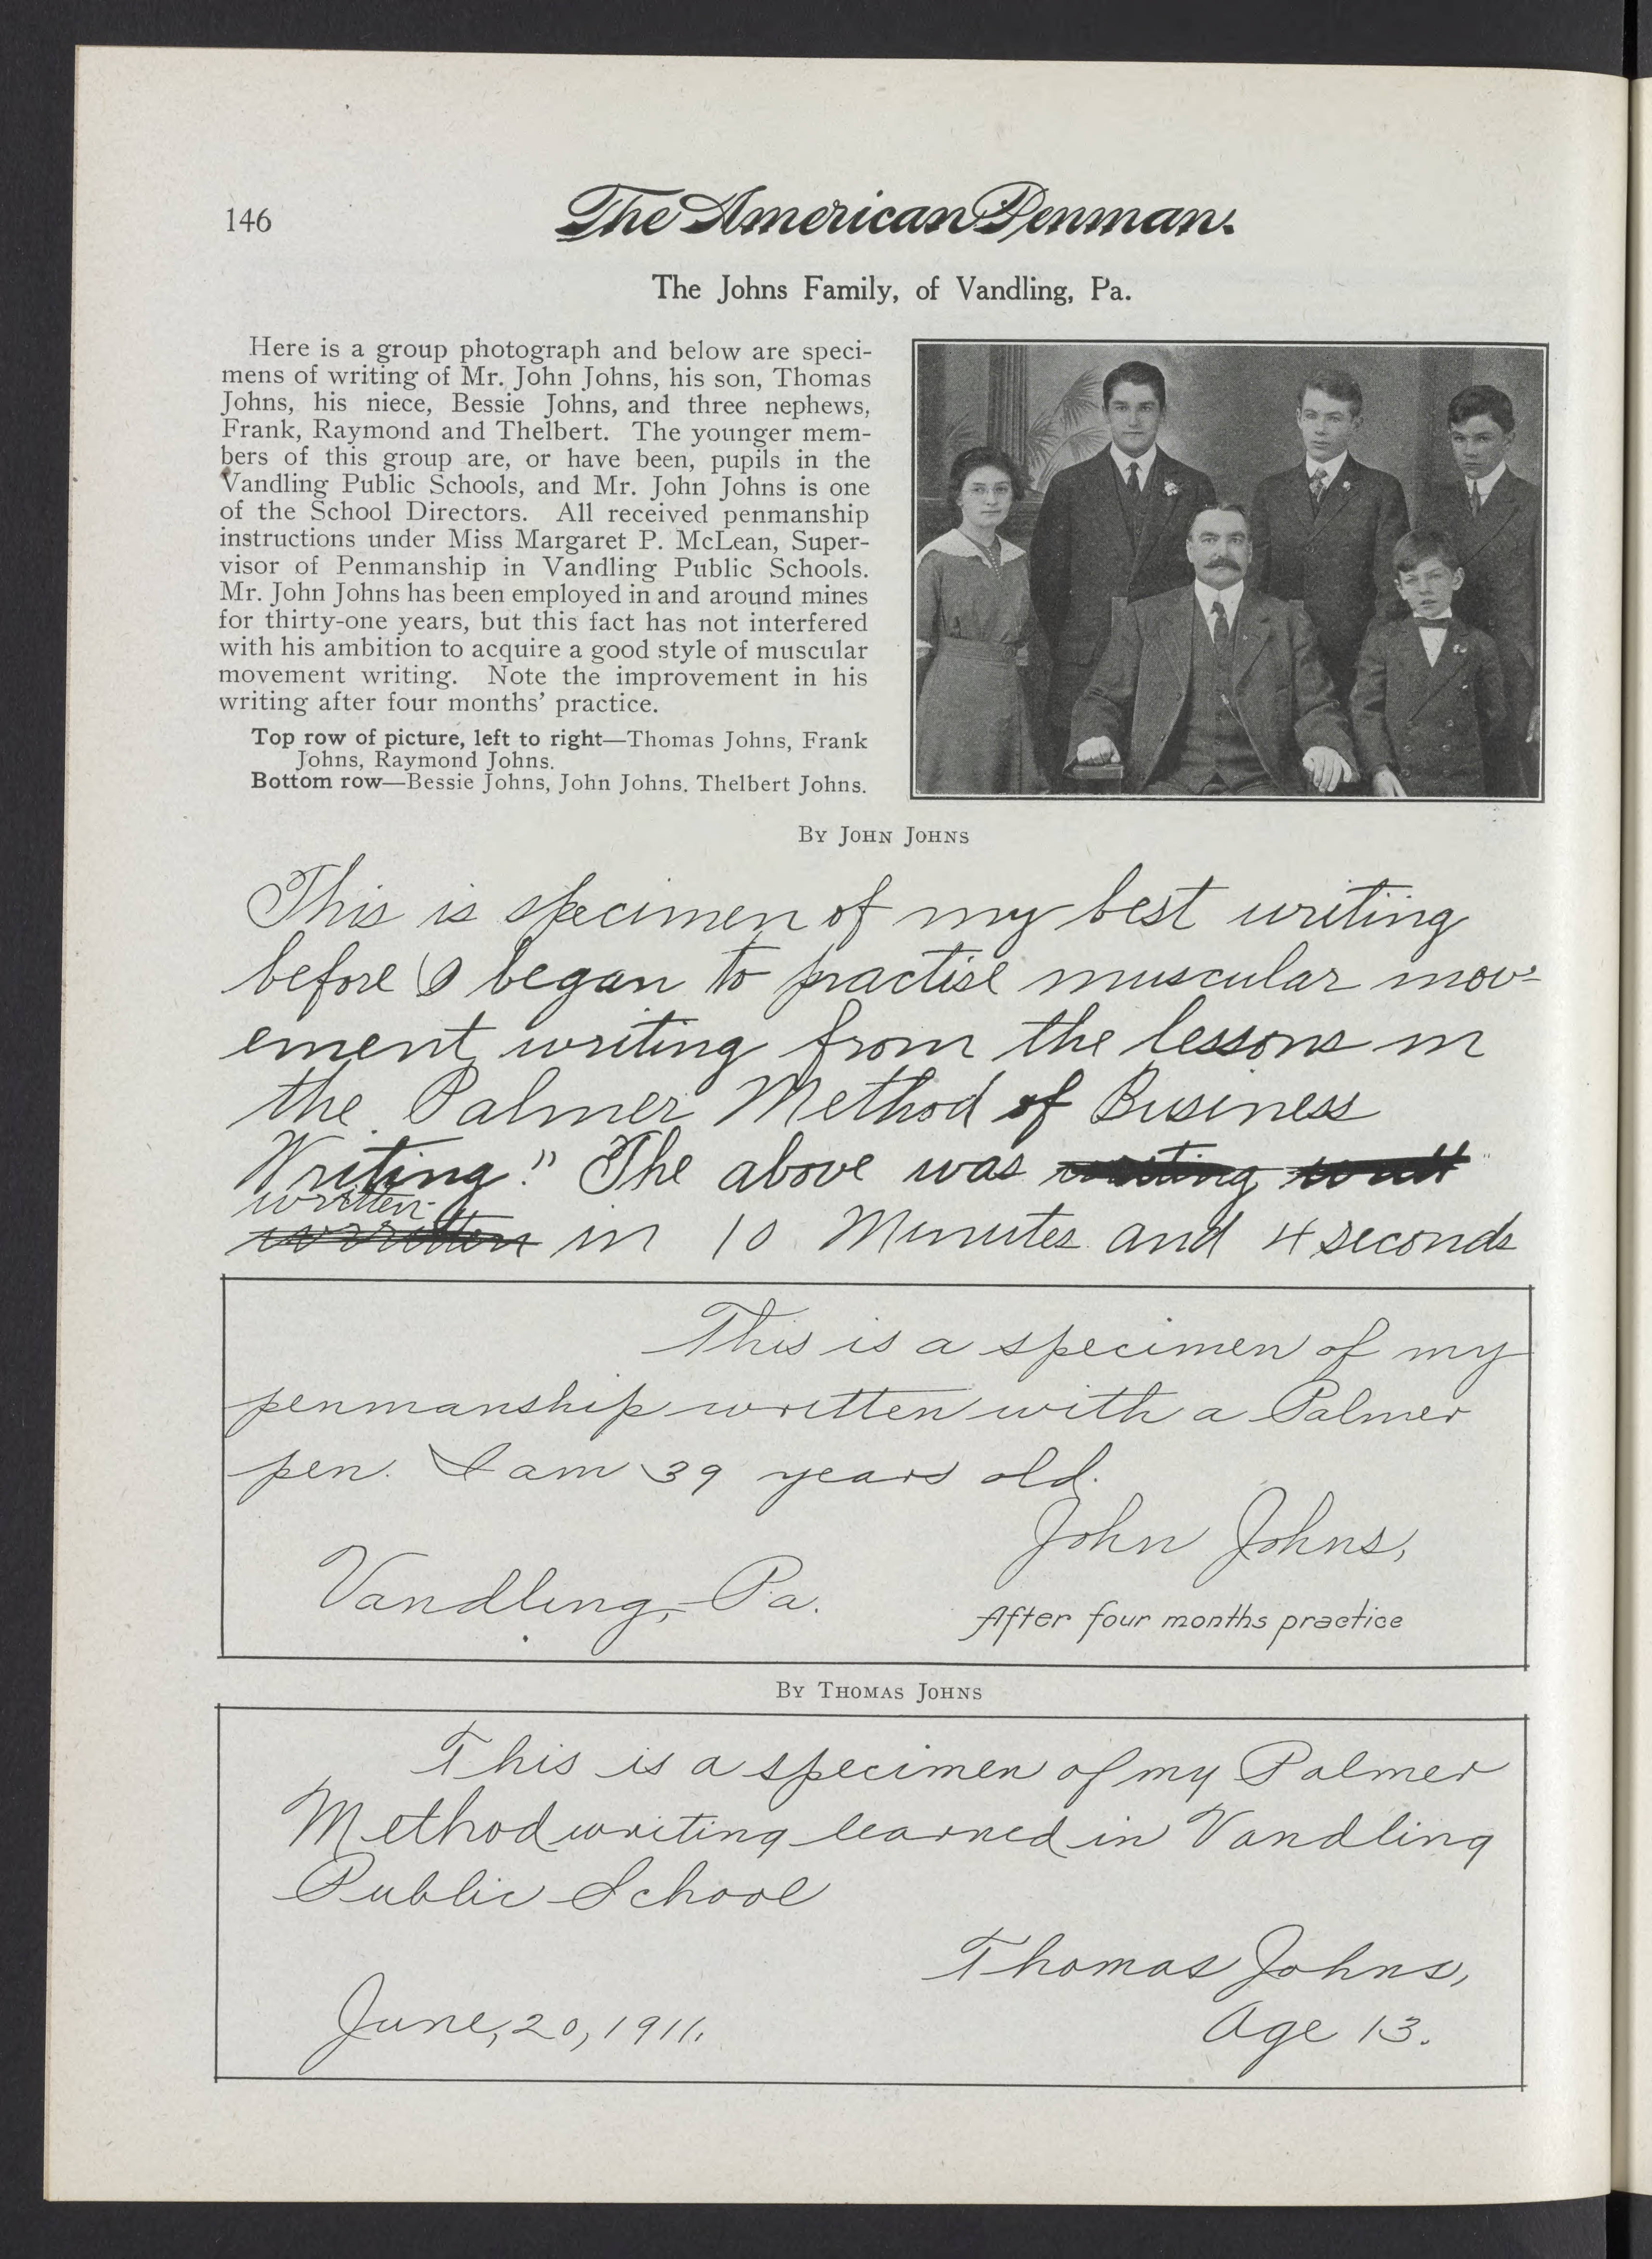 146
The American Penman.
The Johns Family, of Vandling, Pa.
Here is a group photograph and below are speci-
mens of writing of Mr. John Johns, his son, Thomas
Johns, his niece, Bessie Johns, and three nephews,
Frank, Raymond and Thelbert. The younger mem-
bers of this group are, or have been, pupils in the
Vandling Public Schools, and Mr. John Johns is one
of the School Directors. All received penmanship
instructions under Miss Margaret P. McLean, Super-
visor of Penmanship in Vandling Public Schools.
Mr. John Johns has been employed in and around mines
for thirty-one years, but this fact has not interfered
with his ambition to acquire a good style of muscular
movement writing. Note the improvement in his
writing after four months' practice.
Top row of picture, left to right—Thomas Johns, Frank
Johns, Raymond Johns.
Bottom row—Bessie Johns, John Johns, Thelbert Johns.
By John Johns
This is specimen of my best writing
before I began to practise muscular mov-
ement writing from the lessons in
the Palmer Method of Business
Writing." The above was writing
written
written in 10 Minutes and 4 seconds
This is a specimen of my
penmanship written with a Palmer
pen. I am 39 years old.
John Johns,
Vandling, Pa.
After four months practice
By Thomas Johns
This is a specimen of my Palmer
Method writing learned in Vandling
Public School
Thomas Johns,
June, 20, 1911.
Age 13.